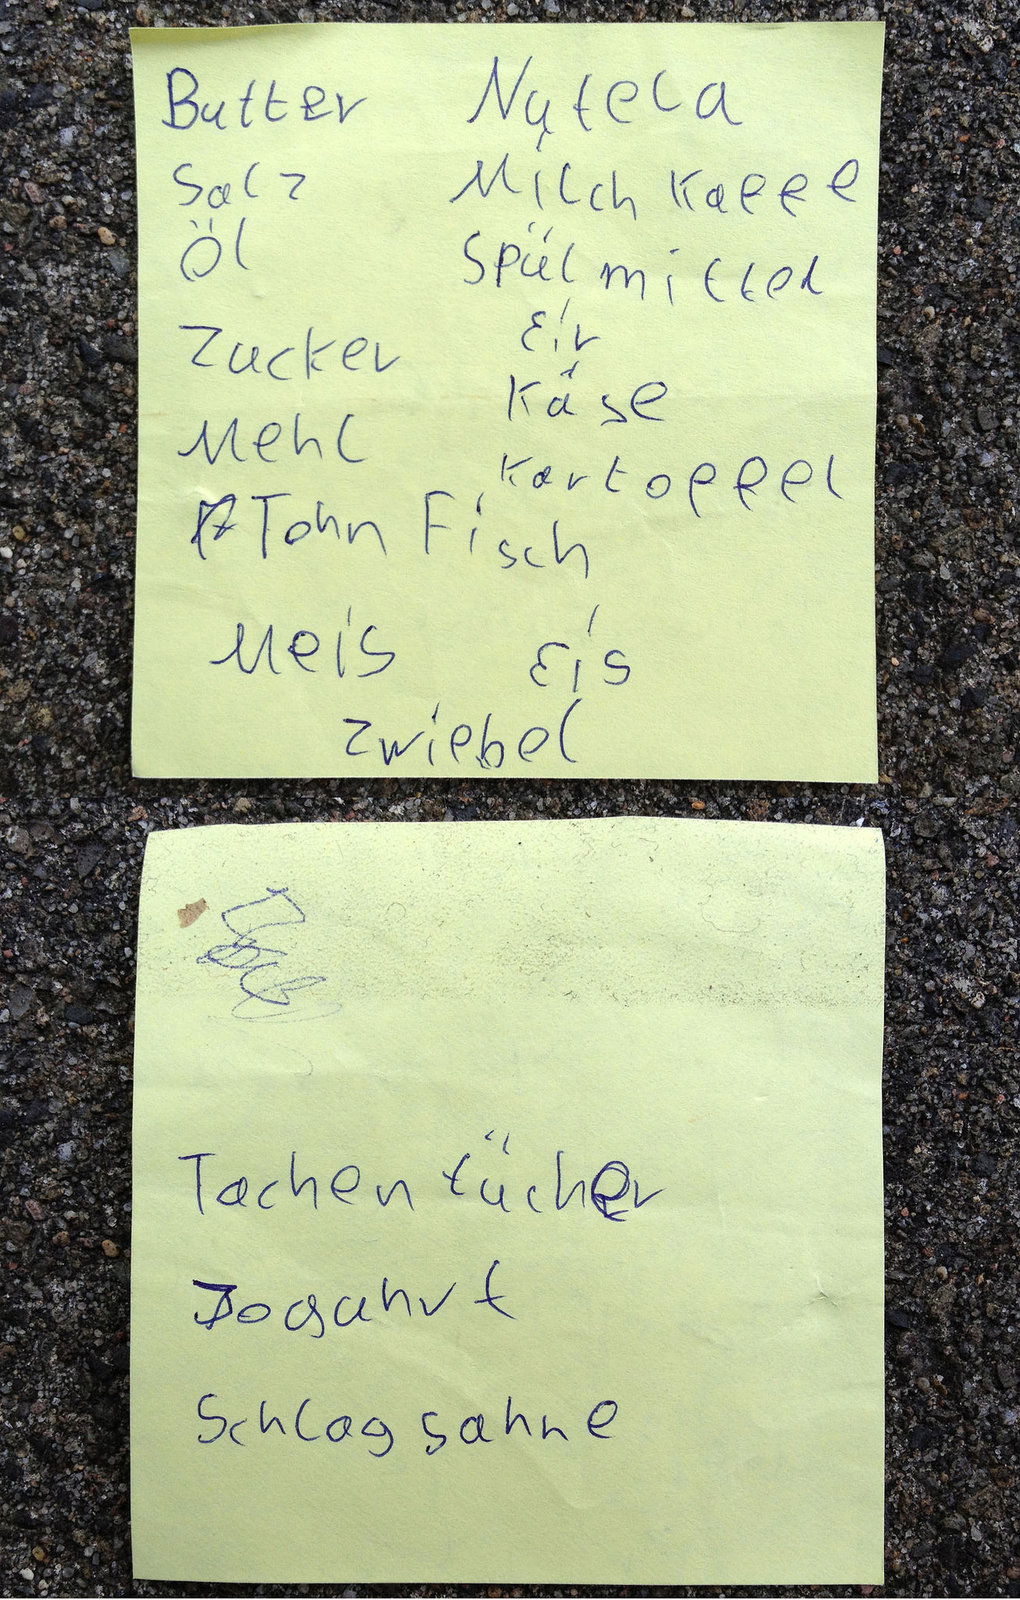 Butter
Salz
Öl
Zucker
Mehl
Tohn Fisch
Meis
Nutela
Milch Kaffe
Spülmittel
Eir
Käse
Kartoffel
Eis
Zwiebel
Tachentücher
Joguhrt
Schlagsahne